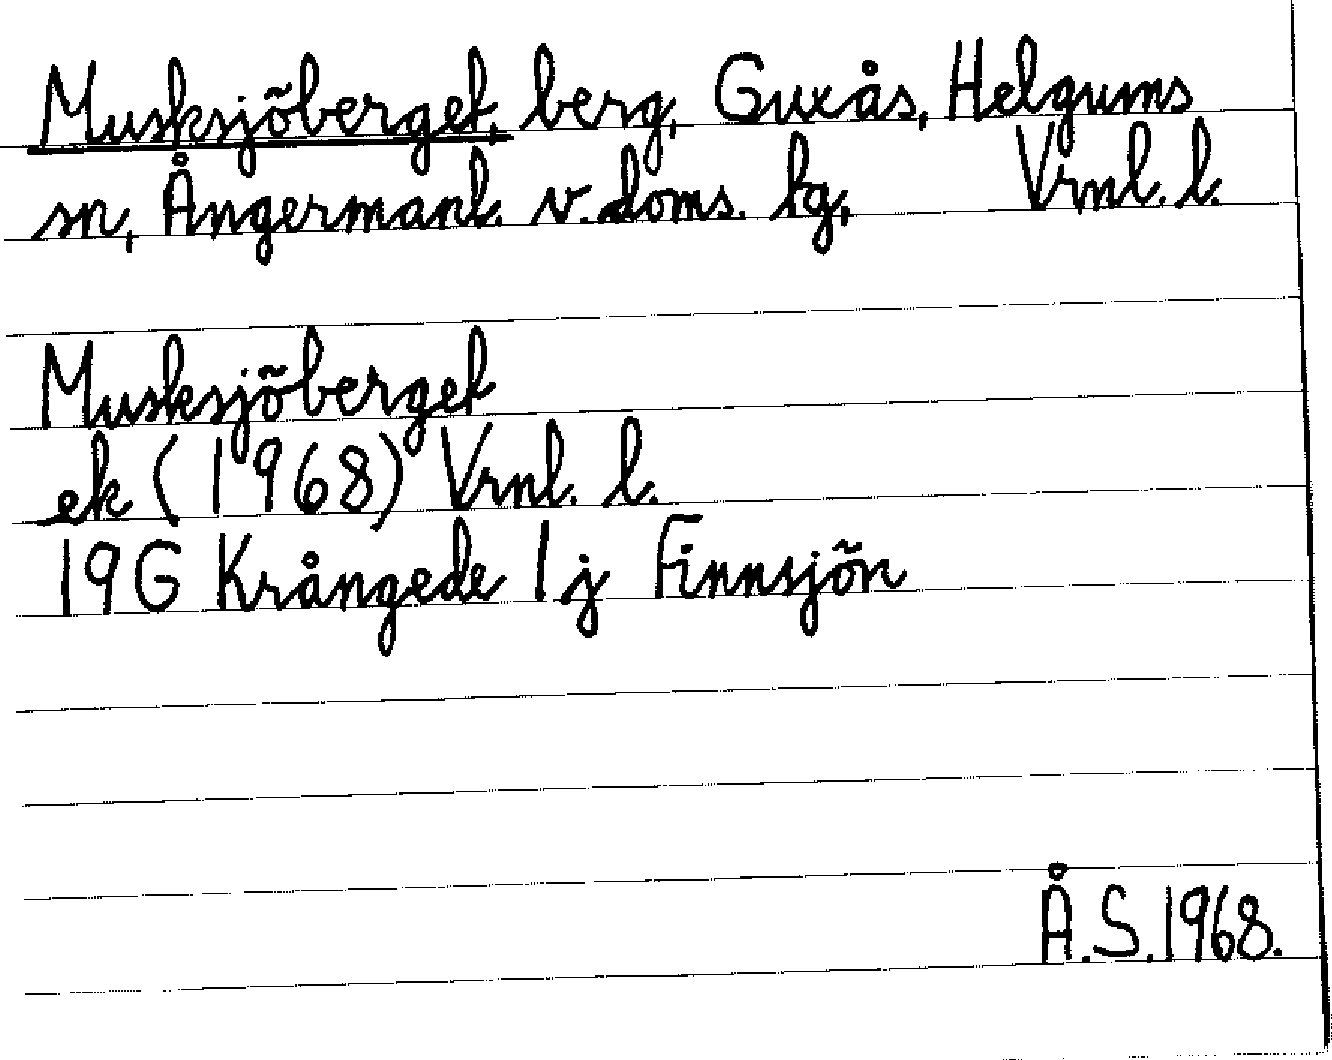 Musksjöberget, berg, Guxås, Helgums
sn, Ångermanl. v. doms. lg, Vrnl. l.
Musksjöberget
ek (1968) Vrnl. l.
19G Krångede 1 j Finnsjön
Å.S.1968.